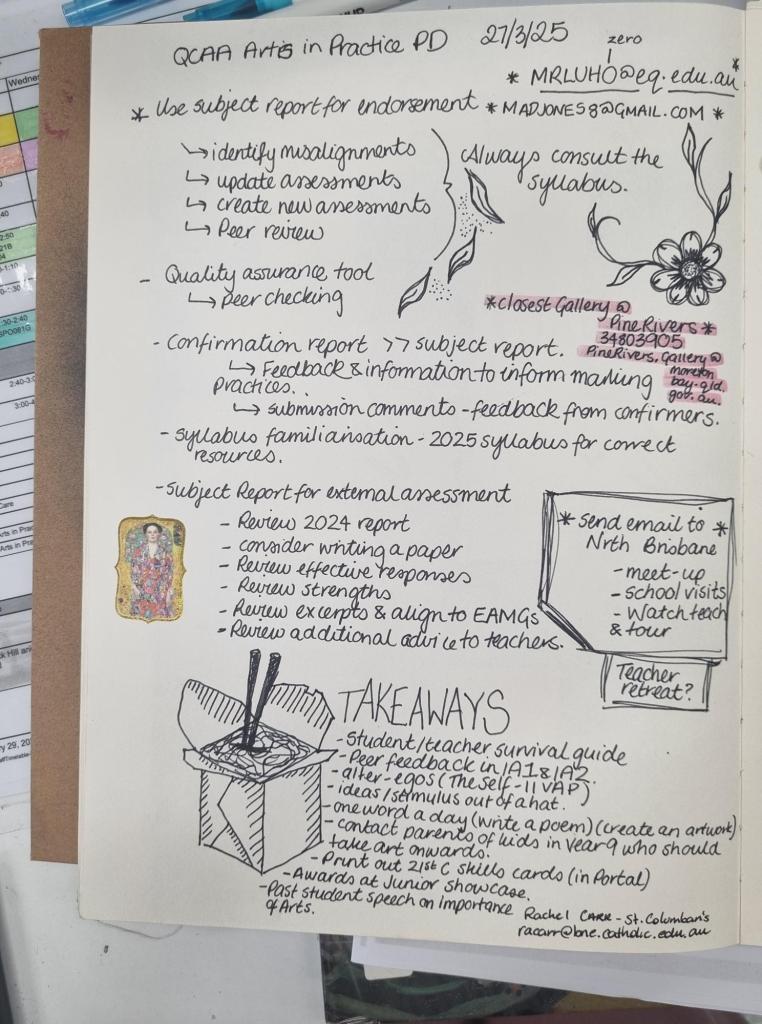 QCAA Arts in Practice PD 27/3/25
zero
* MRLUH0@eq.edu.au *
* Use subject report for endorsement * MADJONES8@GMAIL.COM *
↳ identify misalignments
↳ update assessments
↳ create new assessments
↳ Peer review
Always consult the
syllabus.
- Quality assurance tool
↳ peer checking
*closest Gallery @
Pine Rivers *
34803905
PineRivers.Gallery@
moreton
bay.qld.
gov.au.
- Confirmation report >> subject report.
↳ Feedback & information to inform marking
practices..
↳ submission comments - feedback from confirmers.
- syllabus familiarisation - 2025 syllabus for correct
resources.
- Subject Report for external assessment
- Review 2024 report
- consider writing a paper
- Review effective responses
- Review strengths
- Review excerpts & align to EAMGs
- Review additional advice to teachers.
* Send email to *
Nrth Brisbane
- meet-up
- school visits
- Watch teach
& tour
Teacher
retreat?
TAKEAWAYS
- Student/teacher survival guide
- Peer feedback in IA1 & IA2
- alter-egos (The Self - 11 VAP)
- ideas/stimulus out of a hat.
- one word a day (write a poem) (create an artwork)
- contact parents of kids in Year 9 who should
take art onwards.
- Print out 21st C skills cards (in Portal)
- Awards at Junior showcase.
- Past student speech on importance
of Arts.
Rachel CARR - St. Columban's
racarr@bne.catholic.edu.au
Wednes
2:50
21B
0-1:10
:30-2:40
SPO081G
2:40-3:0
3:00-4
Care
Arts in Pra
Arts in Pra